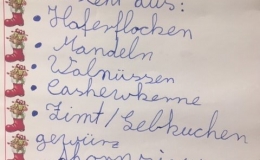 aus:
• Haferflocken
• Mandeln
• Walnüssen
• Cashewkerne
• Zimt/Lebkuchen
gewürz